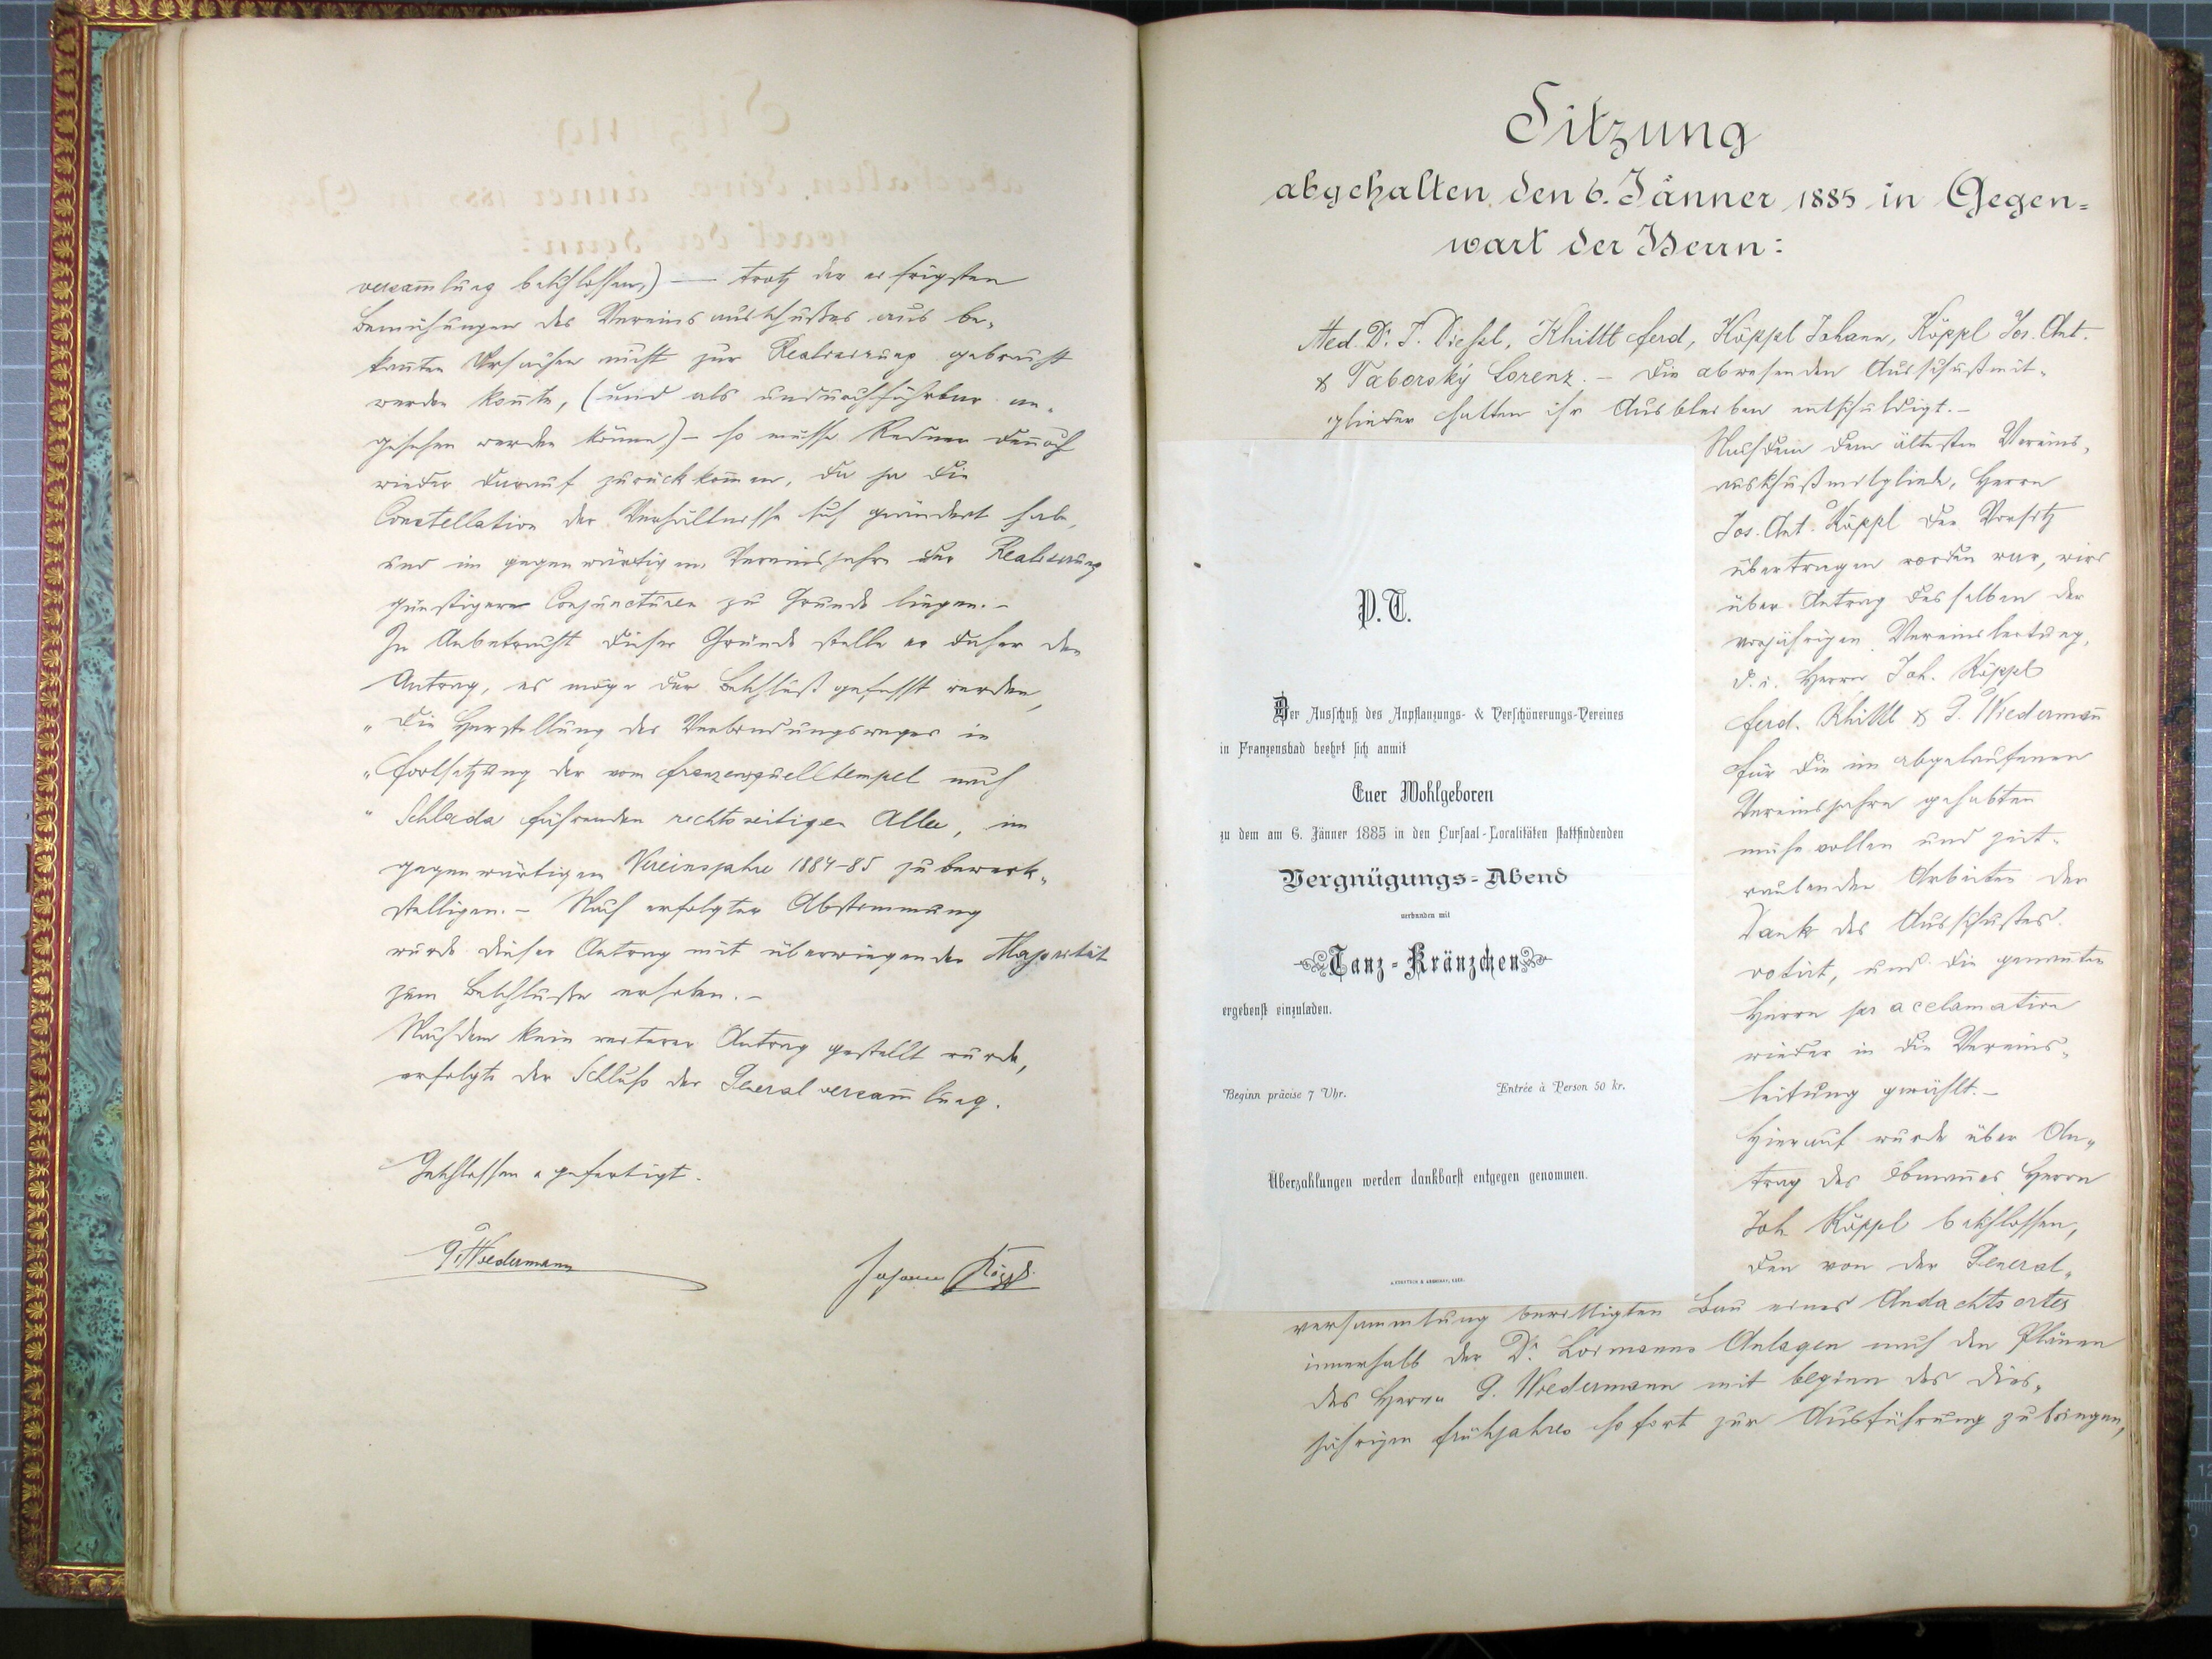 versam̅lung beschlossen,) — trotz der eifrigsten
Bemühungen des Vereinsausschußes aus be-
kan̅ten Ursachen nicht zur Realisirung gebracht
werden kon̅te, (und als undurchführbar an-
gesehen werden könne) – so müsse Redner den̅och
wieder darauf zurückkom̅en, da ja die
Constellation der Verhältnisse sich geändert habe,
und im gegenwärtigen Vereinsjahre der Realisirung
günstigere Conjuncturen zu Grunde liegen. –
In Anbetracht dieser Gründe stelle er daher den
Antrag, es möge der Beschluß gefasst werden,
„Die Herstellung des Verbindungsweges in
„Fortsetzung der vom Franzensquelltempel nach
„Schlada führenden rechtsseitigen Allee, im
gegenwärtigen Vereinsjahre 1884–85 zu bewerk-
stelligen. – Nach erfolgter Abstimmung
wurde dieser Antrag mit überwiegender Majorität
zum Beschlusse erhoben. –
Nachdem kein weiterer Antrag gestellt wurde,
erfolgte der Schluß der Generalversam̅lung.
Geschlossen & gefertigt.
G. Wiedermann
Johann Köppl
Sitzung
abgehalten den 6. Jänner 1885 in Gegen=
wart der Herrn:
Med. Dr. F. Diessl, Khittl Ferd, Köppl Johann, Köppl Jos. Ant.
& Taborský Lorenz. – Die abwesenden Ausschußmit-
glieder hatten ihr Ausbleiben entschuldigt. –
Nachdem dem ältesten Vereins-
ausschußmitgliede, Herrn
Jos. Ant. Köppl der Vorsitz
übertragen worden war, wird
über Antrag desselben der
vorjährigen Vereinsleitung,
d. i. Herrn Joh. Köppl
Ferd. Khittl & G. Wiederman̅
für die im abgelaufenen
Vereinsjahre gehabten
mühevollen und zeit-
raubenden Arbeiten der
Dank des Ausschußes
votirt, und die genan̅ten
Herrn per acclamation
wieder in die Vereins-
leitung gewählt. –
Hierauf wurde über An-
trag des Obman̅es Herrn
Joh. Köppl beschlossen,
den von der General-
versammlung bewilligten Bau eines Andachtsortes
innerhalb der Dr. Loimanns Anlagen nach den Plänen
des Herrn G. Wiedermann mit beginn des dies-
jährigen Frühjahres sofort zur Ausführung zu bringen,
P. T.
Der Ausschuß des Anpflanzungs- & Verschönerungs-Vereines
in Franzensbad beehrt sich anmit
Euer Wohlgeboren
zu dem am 6. Jänner 1885 in den Cursaal-Localitäten stattfindenden
Vergnügungs-Abend
verbunden mit
Tanz-Kränzchen
ergebenst einzuladen.
Beginn präcise 7 Uhr. Entrée à Person 50 kr.
Überzahlungen werden dankbarst entgegen genommen.